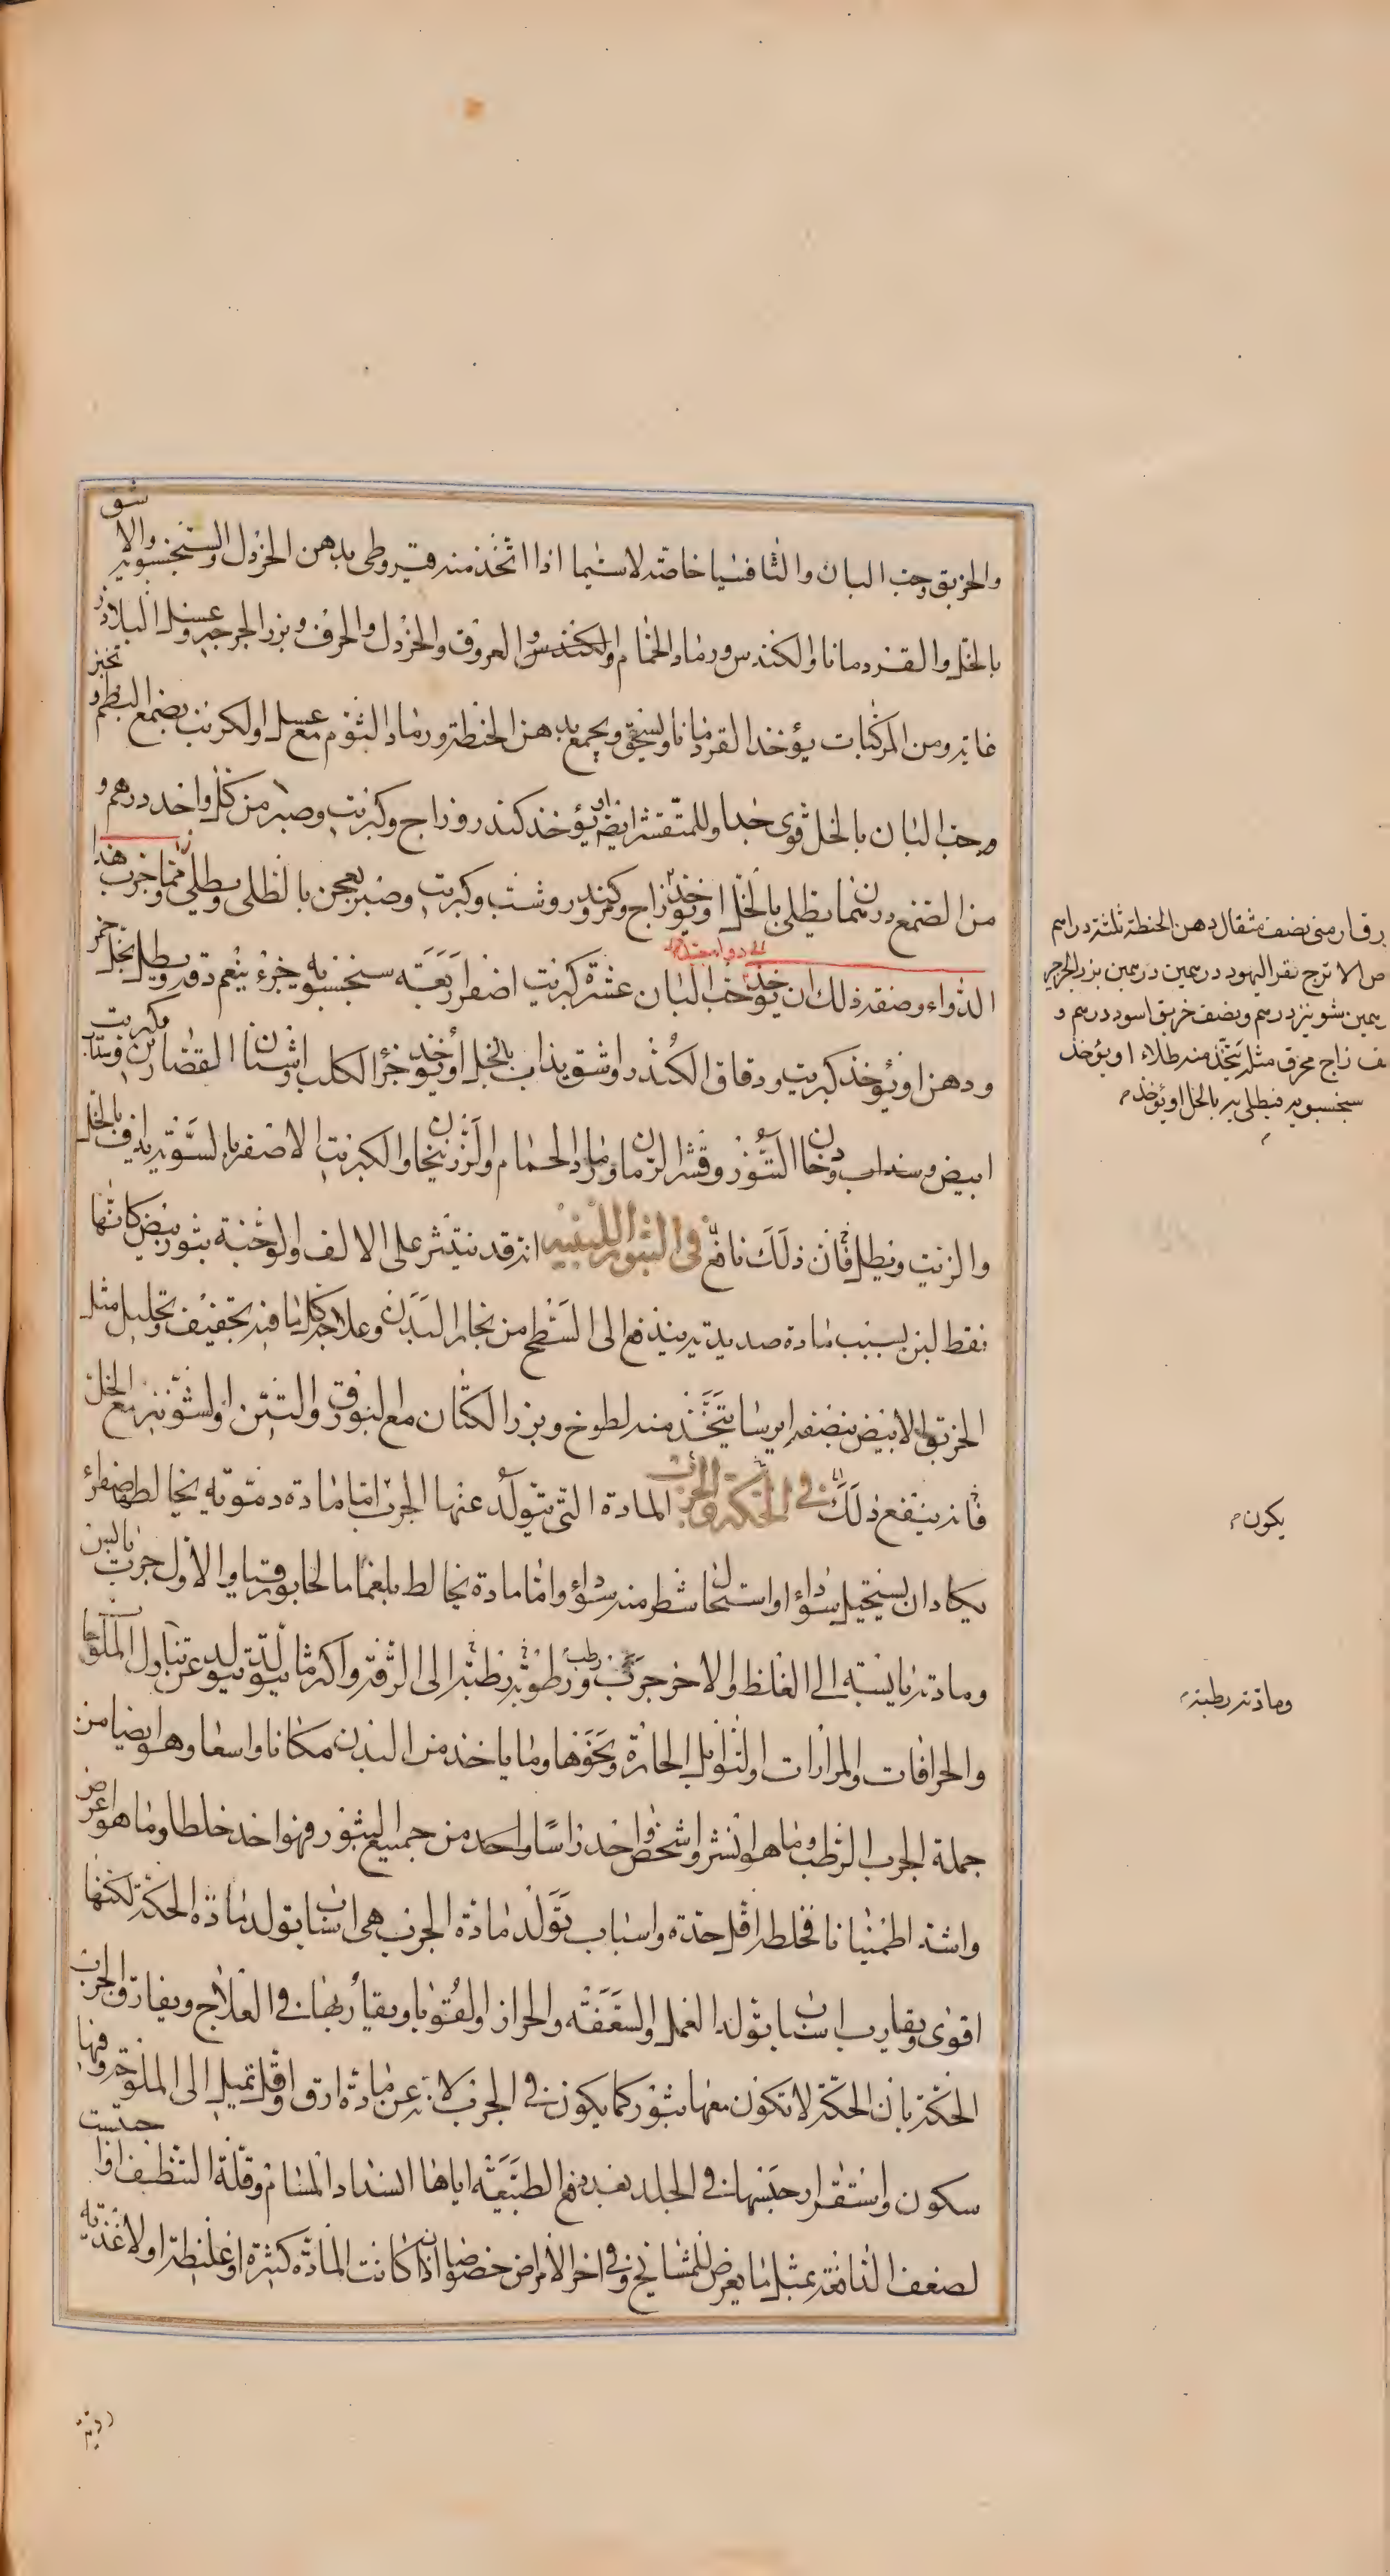 والخربق وحب البان والثافسيا خاصة لاسيما اذا اتخذ منه قيروطى بدهن الخردل والسنجسبويه والاشق
بالخل والقردمانا والكندس ورماد الحمام والكندس والعروق والخردل والحرف وبزر الجرجير وعسل البلاذر
غاية ومن المركبات يؤخذ القردمانا ويسحق ويجمع بدهن الحنطة ورماد الثوم مع عسل او الكرنب بصمغ البطم و
وحب البان بالخل قوى جدا وللمتقشر ايضا او يؤخذ كندر وزاج وكبريت وصبر من كل واحد درهم و
من الصمغ درهمان يطلى بالخل او يؤخذ زاج وكندر وشب وكبريت وصبر يعجن بالطلى ويطلى ومما جرب هذا
الدواء وصفة ذلك ان يؤخذ حب البان عشرة كبريت اصفر اربعة سنجسبويه جزء ينعم دقه ويطلى بخل خمر
ودهن او يؤخذ كبريت ودقاق الكندر واشق يذاب بالخل او يؤخذ خرؤ الكلب واشنان القصارين وكبريت
ابيض وسذاب ودخان التنور وقشر الرمان ورماد الحمام والزرنيخان والكبريت الاصفر بالسوية يداف بالخل
والزيت ويطلى فان ذلك نافع في البثور اللبنية انه قد يتبثر على الانف والوجنة بثور بيض كانها
نقط لبن بسبب مادة صديدية يندفع الى السطح من بخار البدن وعلاجه كل ما فيه تجفيف وتحليل مثل
الخربق الابيض بنصفه ايرسا يتخذ منه لطوخ وبزر الكتان مع البورق والتين والشونيز مع الخل
فانه ينفع ذلك في الحكة والجرب المادة التى يتولد عنها الجرب اما مادة دموية يخالط صفراء
يكاد ان يستحيل سوداء او استحال شطر منه سوداء واما مادة يخالط بلغما مالحا بورقيا والاول جرب يابس
ومادته يابسة الى الغلظ والاخر جرب رطب ورطوبته رطبة الى الرقة واكثر ما يتولد يتولد عن تناول الملوحات
والحرافات والمرارات والتوابل الحارة ونحوها وما ياخذ من البدن مكانا واسعا وهو ايضا من
جملة الجرب الرطب وما هو انشز واشخص واحد راسا واحد من جميع البثور فهو احد خلطا وما هو اعرض
واشد اطمئنانا فخلطه اقل حدة واسباب تولد مادة الجرب هى اسباب تولد مادة الحكة لكنها
اقوى ويقارب اسباب تولد القمل والسعفة والحزاز والقوبا ويقاربها في العلاج ويفارق الجرب
الحكة بان الحكة لا تكون معها بثور كما يكون في الجرب لانه عن مادة ارق واقل تميل الى الملوحة وفيها
سكون واستقرار حبسها في الجلد بعد دفع الطبيعة اياها انسداد المسام وقلة التنظيف او احتبست
لضعف الدافعة بمثل ما يعرض للمشايخ وفي اخر الامراض خصوصا اذا كانت المادة كثيرة او غليظة او لاغذية
رق ارمنى نصف مثقال دهن الحنطة ثلثة دراهم
ص الاترج نقر اليهود درهمين درهمين بزر الجرجير
رهمين شونيز درهم ونصف خربق اسود درهم و
ف زاج محرق مثله يتخذ منه طلاء او يؤخذ
سنجسبويه فيطلى به بالخل او يؤخذ
يكون
ومادته رطبة